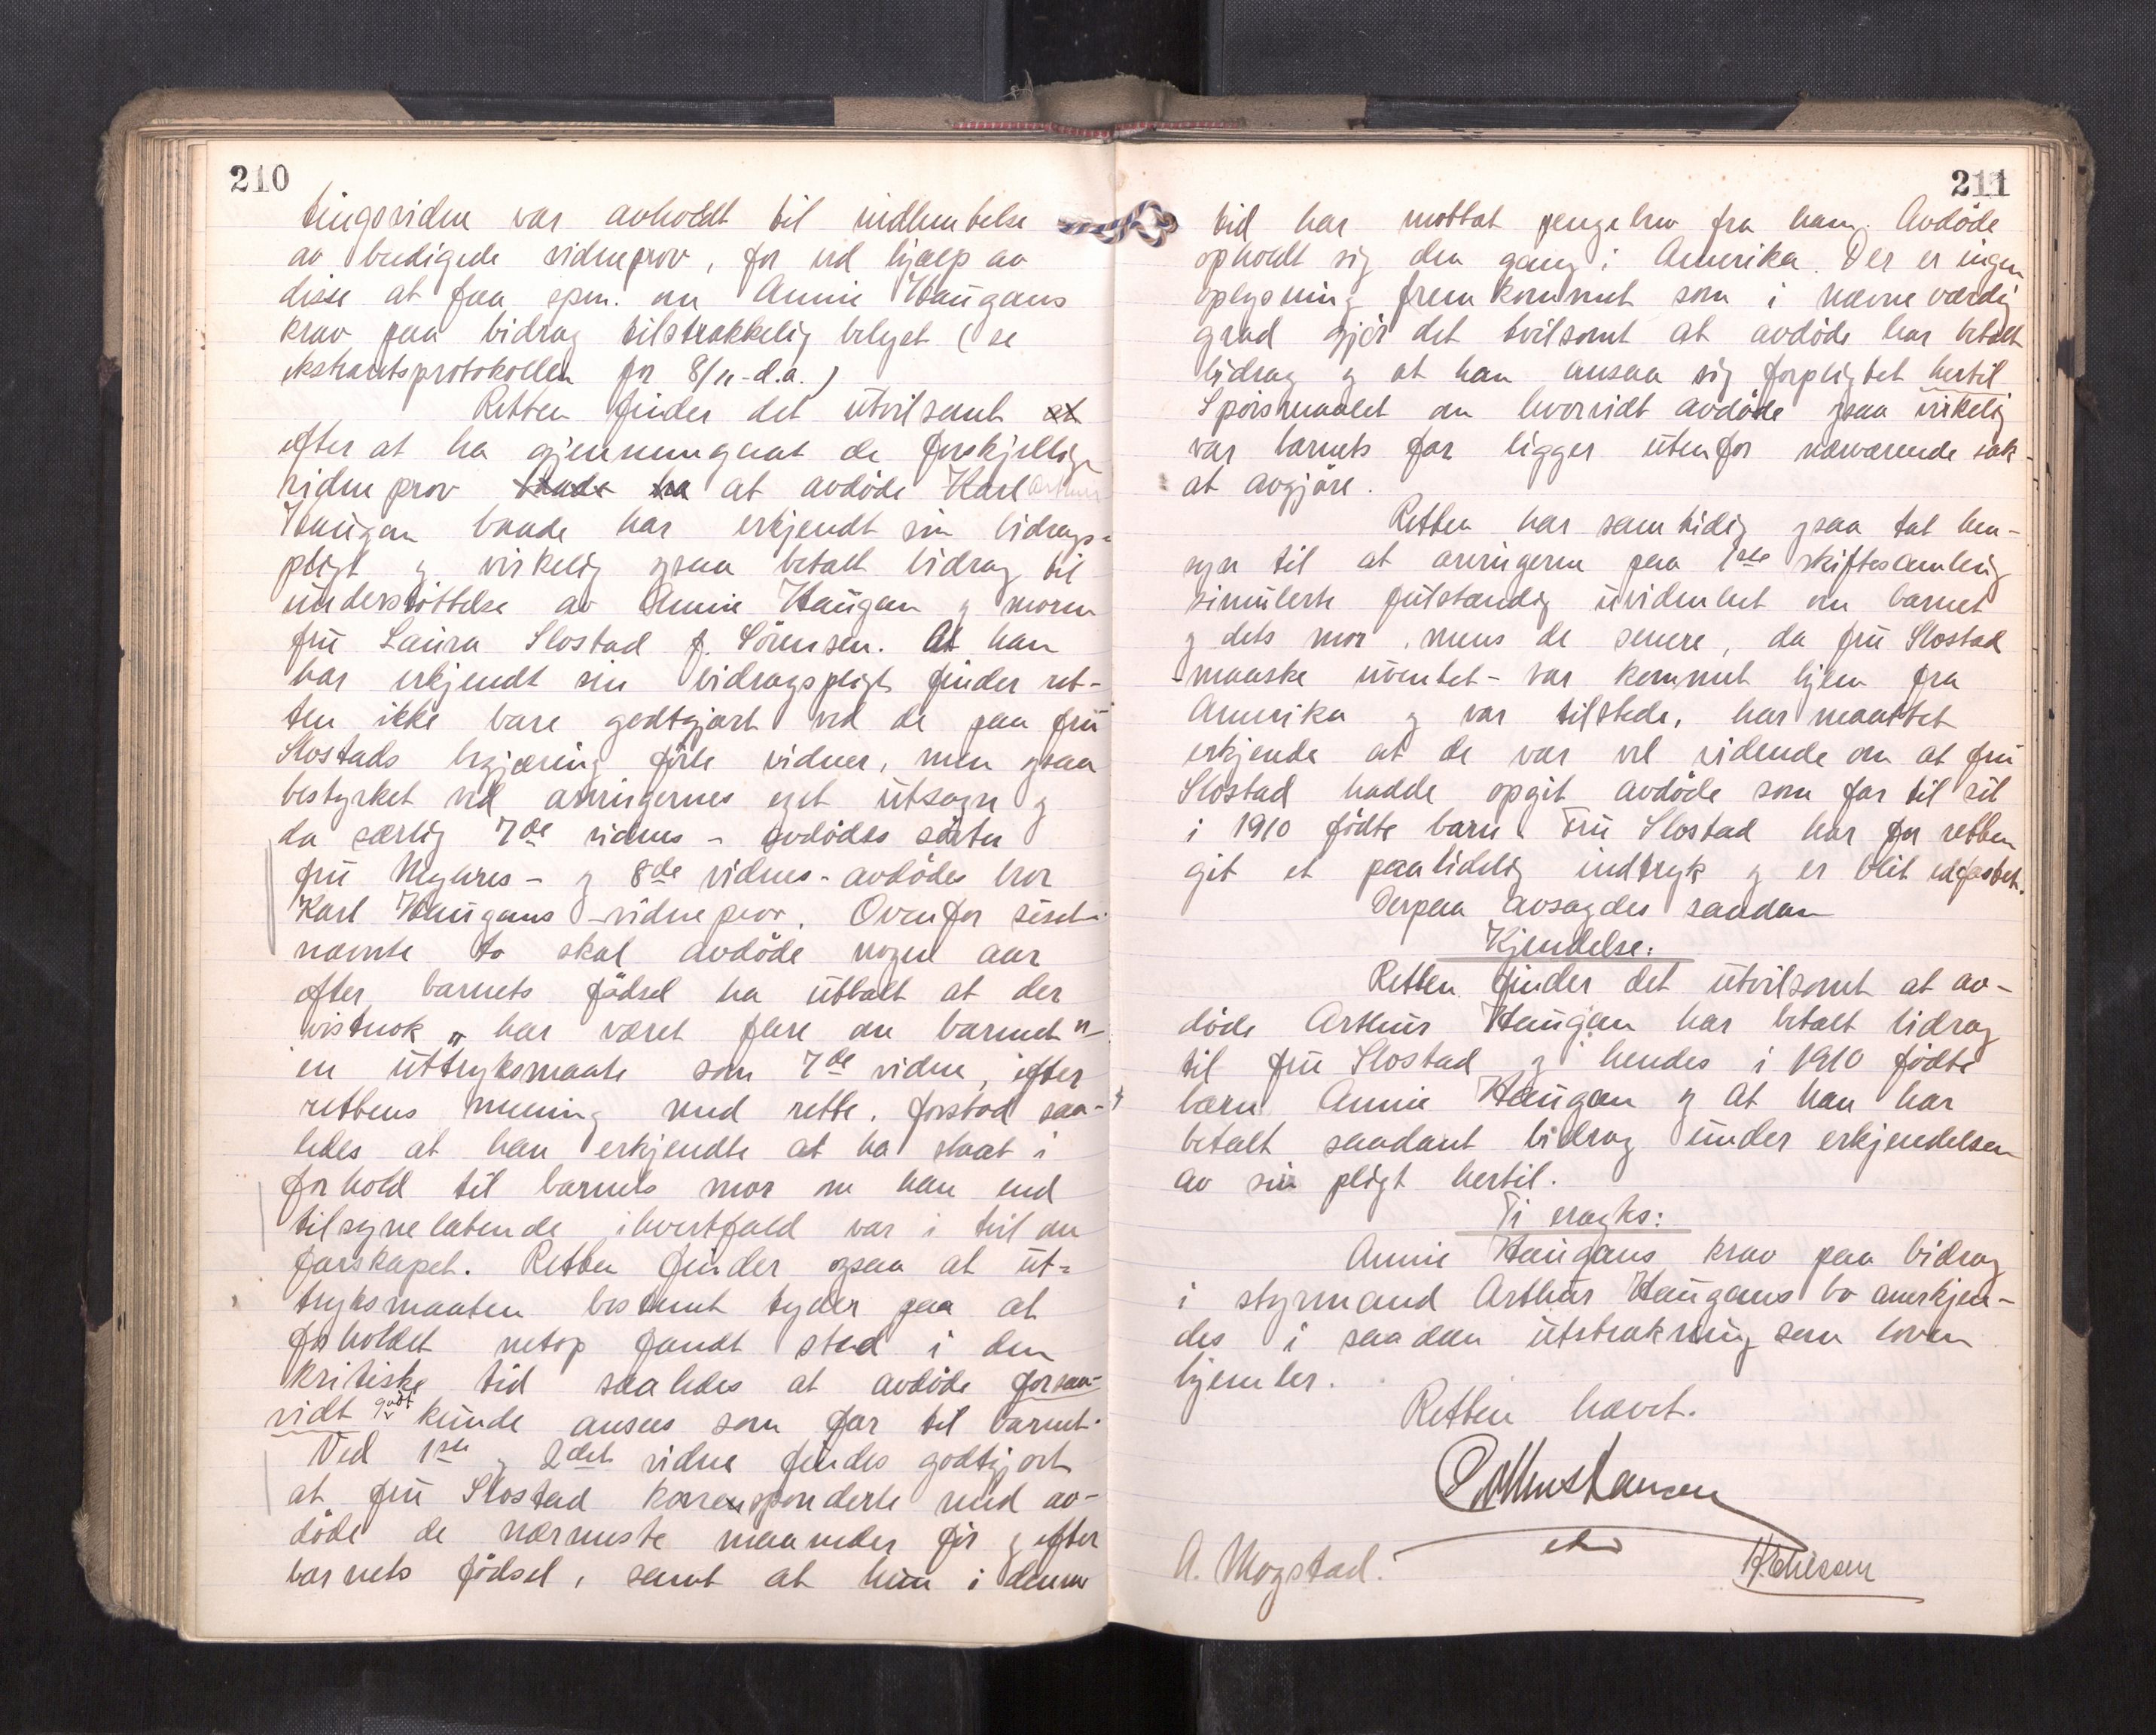 210
tingsvidne var avholdt til indhentelse
av beedigede vidneprov, for ved hjælp av
disse at faa spm. om Annie Haugans
krav paa bidrag tilstrækkelig belyst (se
ekstraretsprotokollen for 8/11-d.a.)
Retten finder det utvilsomt at
efter at ha gjennemgaat de forskjellige
vidneprov baade ha at avdöde Karl Arthur
Haugan baade har erkjendt sin bidrags-
pligt og virkelig ogsaa betalt bidrag til
understöttelse av Annie Haugan og moren
fru Laura Slostad f. Sörensen. At han
har erkjendt sin bidragspligt finder ret-
ten ikke bare godtgjort ved de paa fru
Slostads begjæring förte vidner, men ogsaa
bestyrket ved arvingernes eget utsagn og
da særlig 7de vidnes - avdödes söster
fru - og 8de vidnes - avdödes bror
Karl Haugans - vidneprov. Ovenfor sidst-
nævnte to skal avdöde nogen aar
efter barnets födsel ha uttalt at der
vistnok „har været flere om barnet"-
en uttryksmaate som 7de vidne, efter
rettens mening med rette, forstod saa-
ledes at han erkjendte at ha staat i
forhold til barnets mor om han end
tilsynelatende ihvertfald var i tvil om
farskapet. Retten finder ogsaa at ut-
tryksmaaten bestemt tyder paa at
forholdet netop fandt sted i den
kritiske tid saaledes at avdöde forsaa-
vidt godt kunde ansees som far til barnet.
Ved 1ste og 2det vidne findes godtgjort
at fru Slostad korresponderte med av-
döde de nærmeste maaneder för og efter
barnets födsel, samt at hun i denne
211
tid har mottat pengebrev fra ham. Avdöde
opholdt sig den gang i Amerika. Der er ingen
oplysning fremkommet som i nævneværdig
grad gjör det tvilsomt at avdöde har betalt
bidrag og at han ansaa sig forpligtet hertil
Spörsmaalet om hvorvidt avdöde ogsaa virkelig
var barnets far ligger utenfor nærværende sak
at avgjöre.
Retten har samtidig ogsaa tat hen-
syn til at arvingerne paa 1ste skiftesamling
simulerte fulstændig uvidenhet om barnet
og dets mor, mens de senere, da fru Slostad
- maaske uventet - var kommet hjem fra
Amerika og var tilstede, har maattet
erkjende at de var vel vidende om at fru
Slostad hadde opgit avdöde som far til sit
i 1910 födte barn. Fru Slostad har for retten
git et paalidelig indtryk og er blit edfæstet.
Derpaa avsagdes saadan
Kjendelse:
Retten finder det utvilsomt at av-
döde Arthur Haugan har betalt bidrag
til fru Slostad og hendes i 1910 födte
barn Annie Haugan og at han har
betalt saadant bidrag under erkjendelsen
av sin pligt hertil.
Ti eragtes:
Annie Haugans krav paa bidrag
i styrmand Arthur Haugans bo anerkjen-
des i saadan utstrækning som loven
hjemler.
Retten hævet.
A. Mogstad.